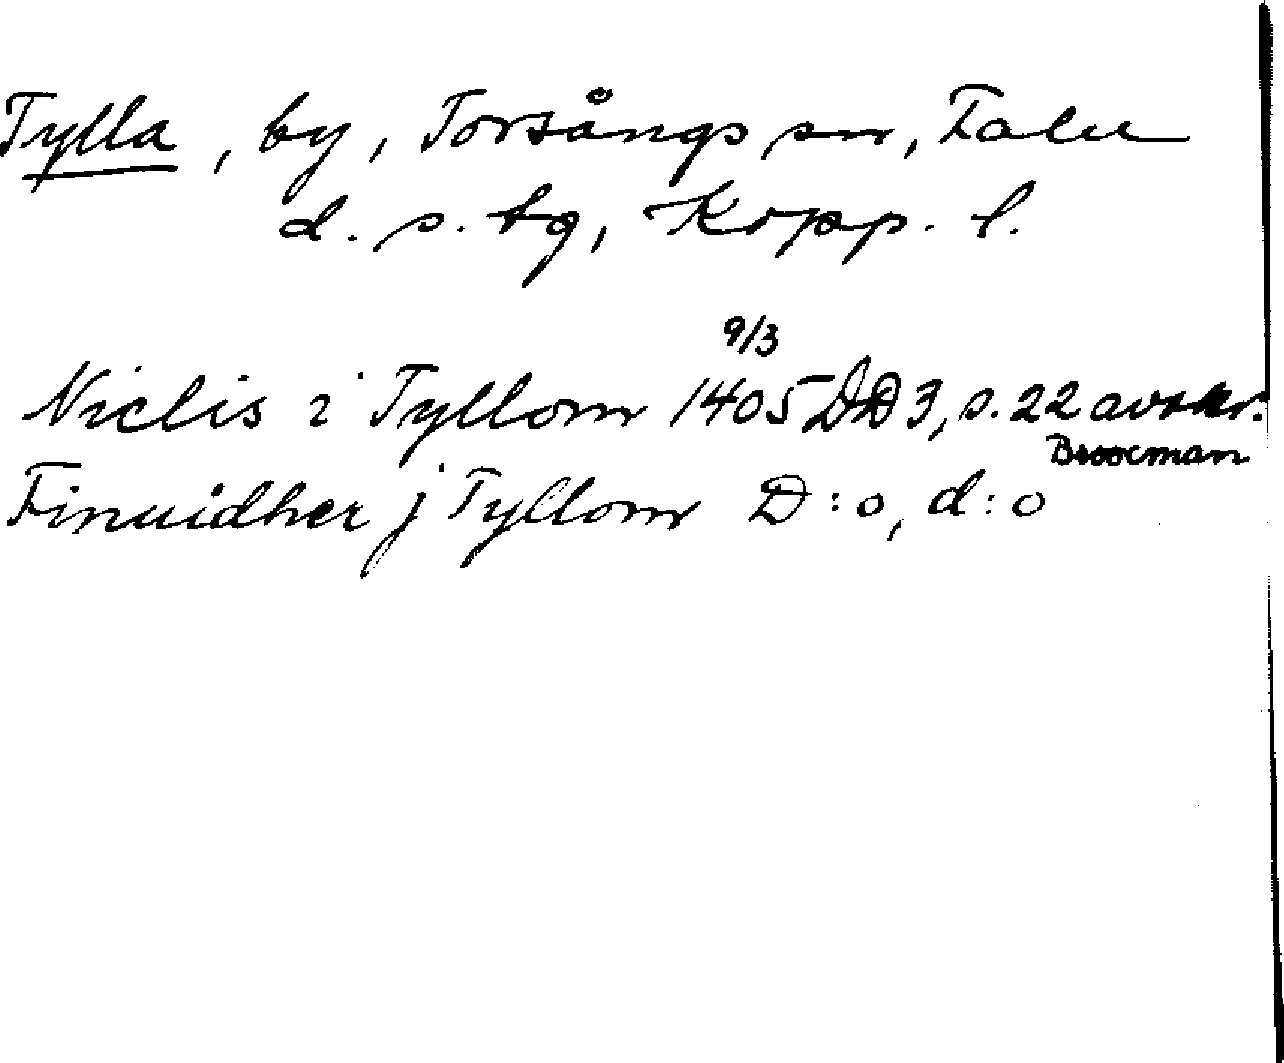 Tylla, by, Torsångs sn, Falu
d. s. tg, Kopp. l.
Niclis i Tyllom 9/3 1405 DD 3, s. 22 avskr.
Broocman
Finuidher j Tyllom D:o, d:o